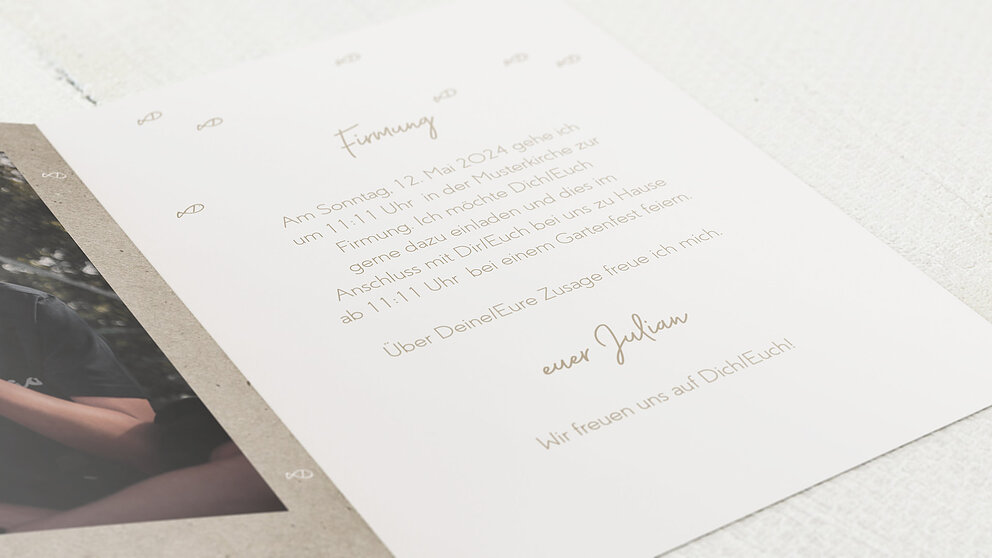 Firmung
Am Sonntag, 12. Mai 2024 gehe ich
um 11:11 Uhr in der Musterkirche zur
Firmung. Ich möchte Dich/Euch
gerne dazu einladen und dies im
Anschluss mit Dir/Euch bei uns zu Hause
ab 11:11 Uhr bei einem Gartenfest feiern.
Über Deine/Eure Zusage freue ich mich.
euer Julian
Wir freuen uns auf Dich/Euch!